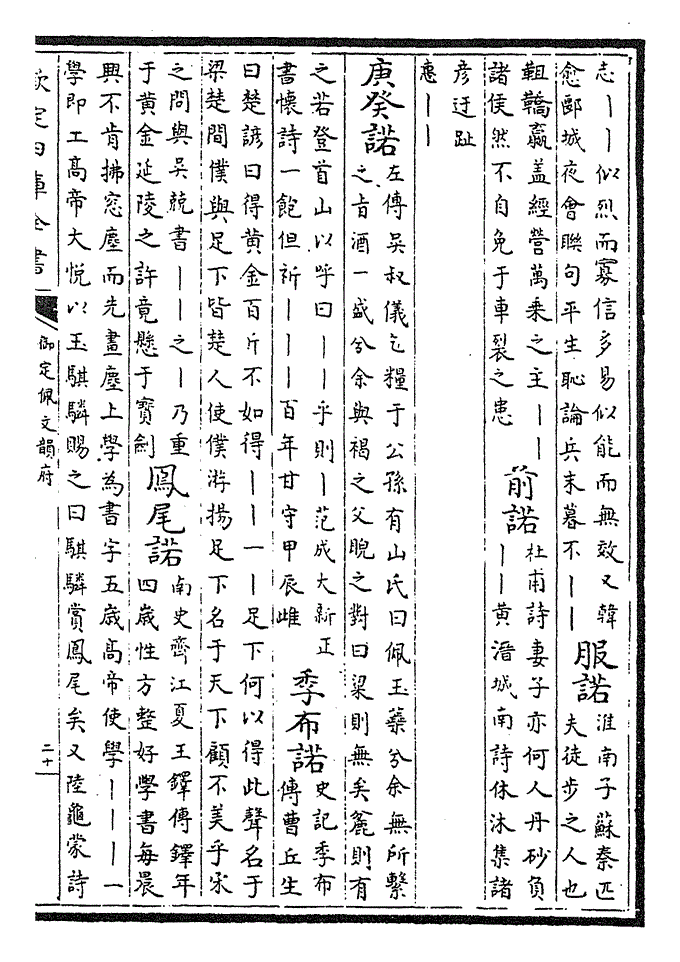 志丨丨似烈而寡信多易似能而無效又韓
愈郾城夜會聯句平生恥論兵末暮不丨丨
服諾
淮南子蘇秦匹
夫徒步之人也
靼鞽羸蓋經營萬乘之主丨丨
諸侯然不自免于車裂之患
前諾
杜甫詩妻子亦何人丹砂負
丨丨黃溍城南詩休沐集諸
彥迂趾
惠丨丨
庚癸諾
左傳吳叔儀乞糧于公孫有山氏曰佩玉蘂兮余無所繫
之旨酒一盛兮余與褐之父睨之對曰粱則無矣麄則有
之若登首山以呼曰丨丨乎則丨范成大新正
書懷詩一飽但祈丨丨丨百年甘守甲辰雌
季布諾
史記季布
傳曹丘生
曰楚諺曰得黃金百斤不如得丨丨一丨足下何以得此聲名于
梁楚間僕與足下皆楚人使僕游揚足下名于天下顧不美乎宋
之問與吳兢書丨丨之丨乃重
于黃金延陵之許竟懸于寶劍
鳳尾諾
南史齊江夏王鐸傳鐸年
四歲性方整好學書每晨
興不肯拂窓塵而先畫塵上學為書字五歲高帝使學丨丨丨一
學即工高帝大悅以玉騏驎賜之曰騏驎賞鳳尾矣又陸龜蒙詩
欽定四庫全書
御定佩文韻府
二十